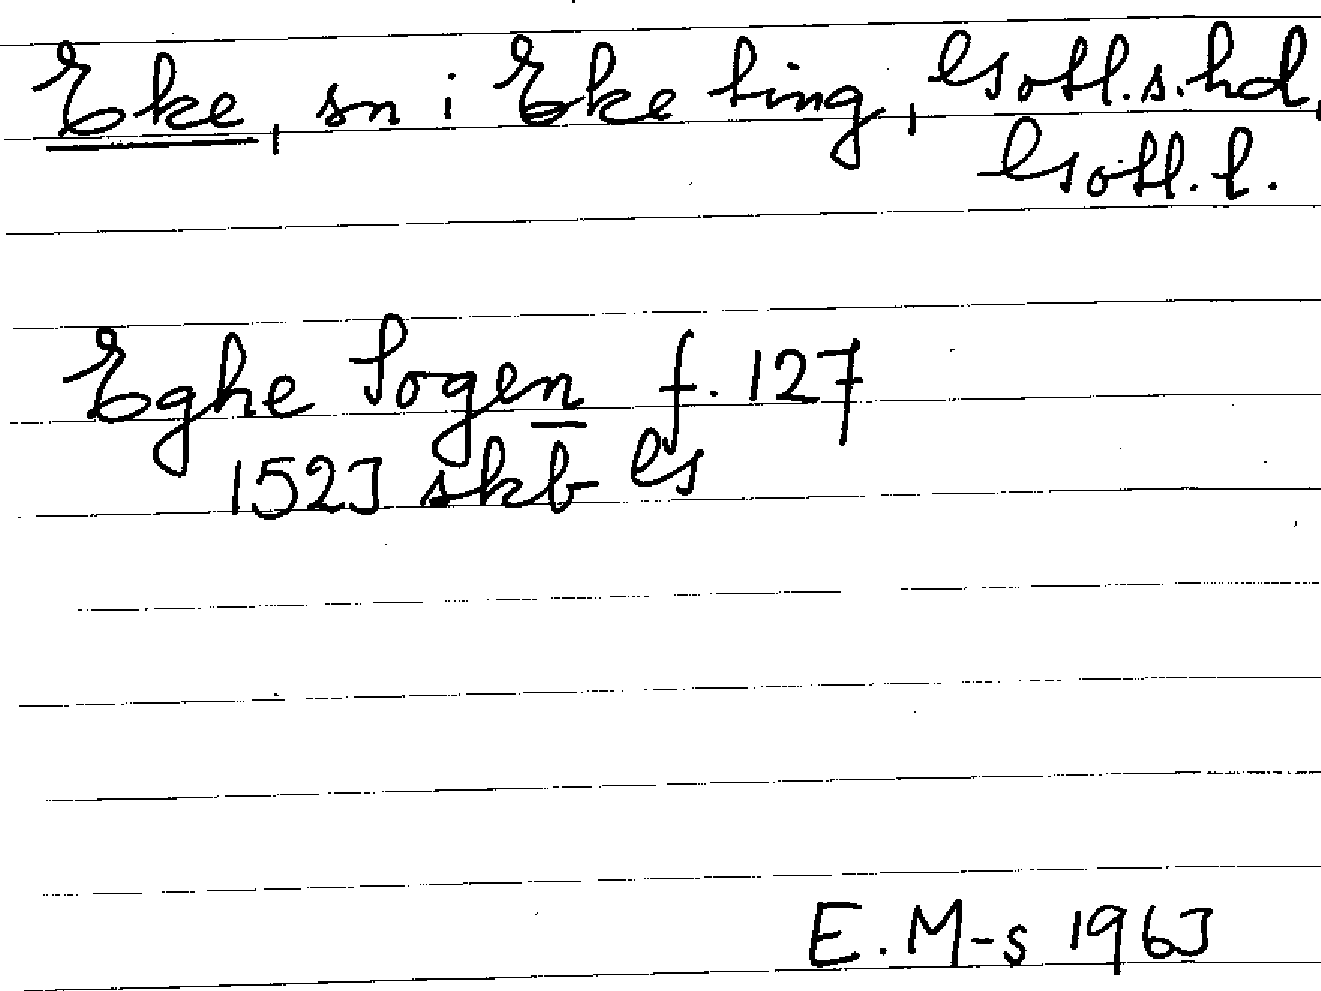 Eke, sn i Eke ting, Gotl.s.hd,
Gotl.l.
Eghe Sogen f. 127
1523 skb G
E.M-s 1963